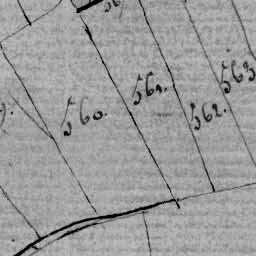 560.
561.
562.
563